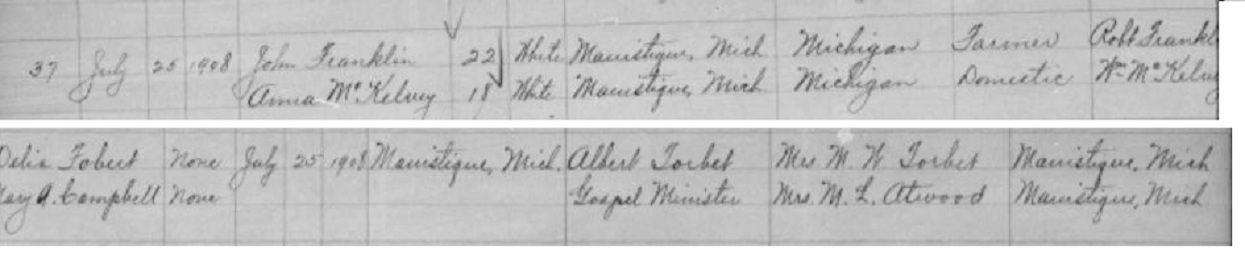 37 July 25 1908 John Franklin 22 White Manistique, Mich Michigan Farmer Robt Frankl
Anna McKelvey 18 White Manistique, Mich Michigan Domestic Wm McKelvey
Delia Fobert None July 25 1908 Manistique, Mich. Albert Torbet Mrs M. W Torbet Manistique, Mich
Mary A. Campbell None Gospel Minister Mrs. M. L. Atwood Manistique, Mich